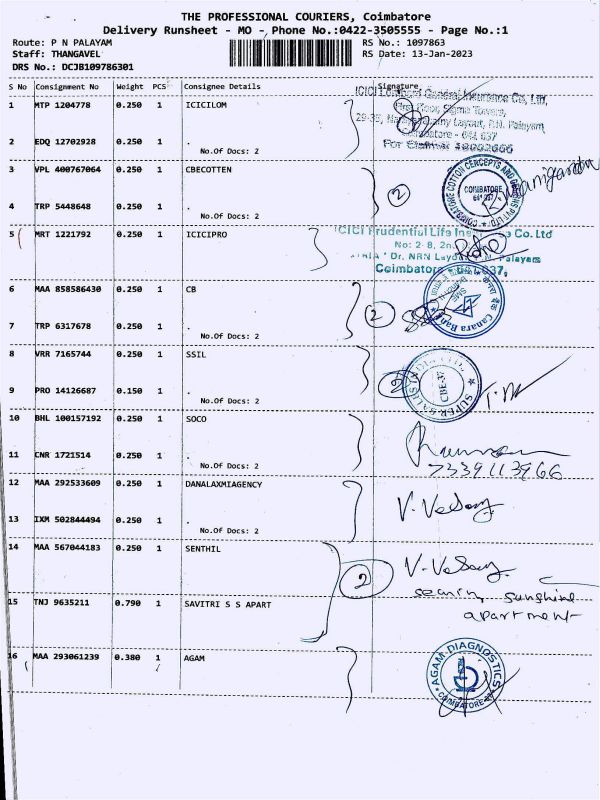 THE PROFESSIONAL COURIERS, Coimbatore
Delivery Runsheet - MO - Phone No.:0422-3505555 - Page No.:1
Route: P N PALAYAM RS No.: 1097863
Staff: THANGAVEL RS Date: 13-Jan-2023
DRS No.: DCJB109786301
S No Consignment No Weight PCS Consignee Details Signature
1 MTP 1204778 0.250 1 ICICILOM
ICICI Lombard General Insurance Co, Ltd,
First Floor, Sigma Towers,
Layout, P.N. Palayam,
Coimbatore - 641 037
2 EDQ 12702928 0.250 1 .
No.Of Docs: 2
3 VPL 400767064 0.250 1 CBECOTTEN
2
COIMBATORE COTTON CONCEPTS AND PVT LTD
COIMBATORE
4 TRP 5448648 0.250 1 .
No.Of Docs: 2
5 MRT 1221792 0.250 1 ICICIPRO
ICICI Prudential Life Co. Ltd
No: 2-8,
Dr. NRN Palayam
Coimbatore 037,
6 MAA 858586430 0.250 1 CB
2
Canara Bank
7 TRP 6317678 0.250 1 .
No.Of Docs: 2
8 VRR 7165744 0.250 1 SSIL
2
CBE-37
9 PRO 14126687 0.150 1 .
No.Of Docs: 2
10 BHL 100157192 0.250 1 SOCO
11 CNR 1721514 0.250 1 .
7339113966
No.Of Docs: 2
12 MAA 292533609 0.250 1 DANALAXMIAGENCY
13 IXM 502844494 0.250 1 .
No.Of Docs: 2
14 MAA 567044183 0.250 1 SENTHIL
2
sunshine
apartment
15 TNJ 9635211 0.790 1 SAVITRI S S APART
16 MAA 293061239 0.380 1 AGAM
AGAM DIAGNOSTICS
COIMBATORE